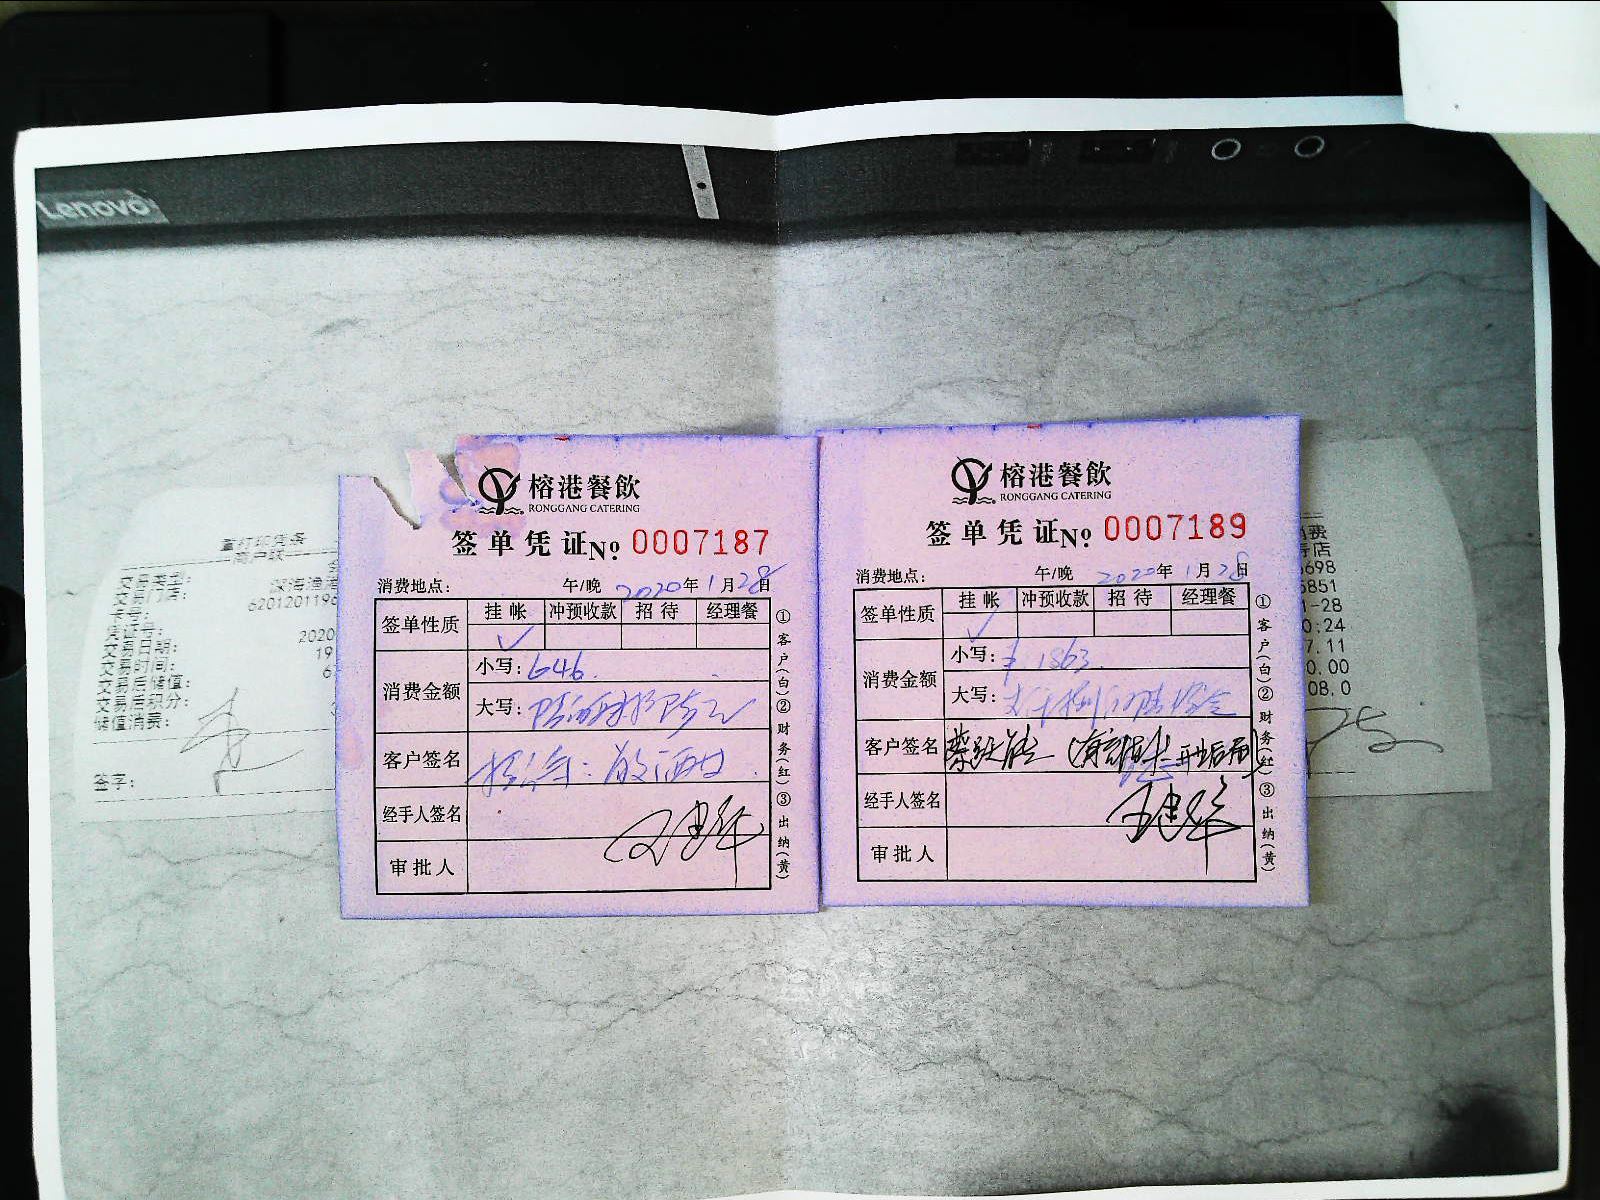 Lenovo
重打印凭条
商户联
交易类型:
交易门店: 深海渔港
卡号: 6201201196
凭证号:
交易日期: 2020
交易时间: 19
交易后储值:
交易后积分:
储值消费:
签字:
榕港餐飲
RONGGANG CATERING
签单凭证No 0007187
消费地点: 午/晚 2020年1月28日
签单性质 挂帐 冲预收款 招待 经理餐
✓
消费金额 小写: 646.
大写:
客户签名
经手人签名
审批人
①客户(白)②财务(红)③出纳(黄)
榕港餐飲
RONGGANG CATERING
签单凭证No 0007189
消费地点: 午/晚 2020年1月28日
签单性质 挂帐 冲预收款 招待 经理餐
✓
消费金额 小写: ¥1863.
大写:
客户签名
经手人签名
审批人
①客户(白)②财务(红)③出纳(黄)
消费
寺店
5698
5851
1-28
0:24
7.11
0.00
08.0